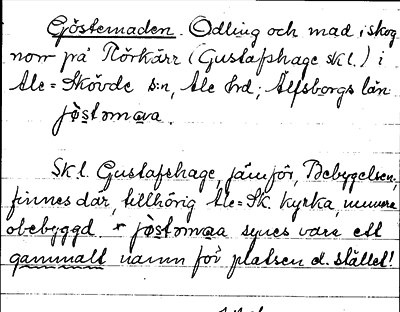 Göstemaden. Odling och mad i skog
norr på Mörkärr (Gustafshage skl.) i
Ale=Skövde s:n, Ale hrd; Älfsborgs län
jöstomava.
Skl. Gustafshage, jämför, Bebygelsen,
finnes där, tillhörig Ale=Sk. kyrka, numera
obebyggd. * jöstomaa synes vara ett
gammalt namn för platsen d. stället!